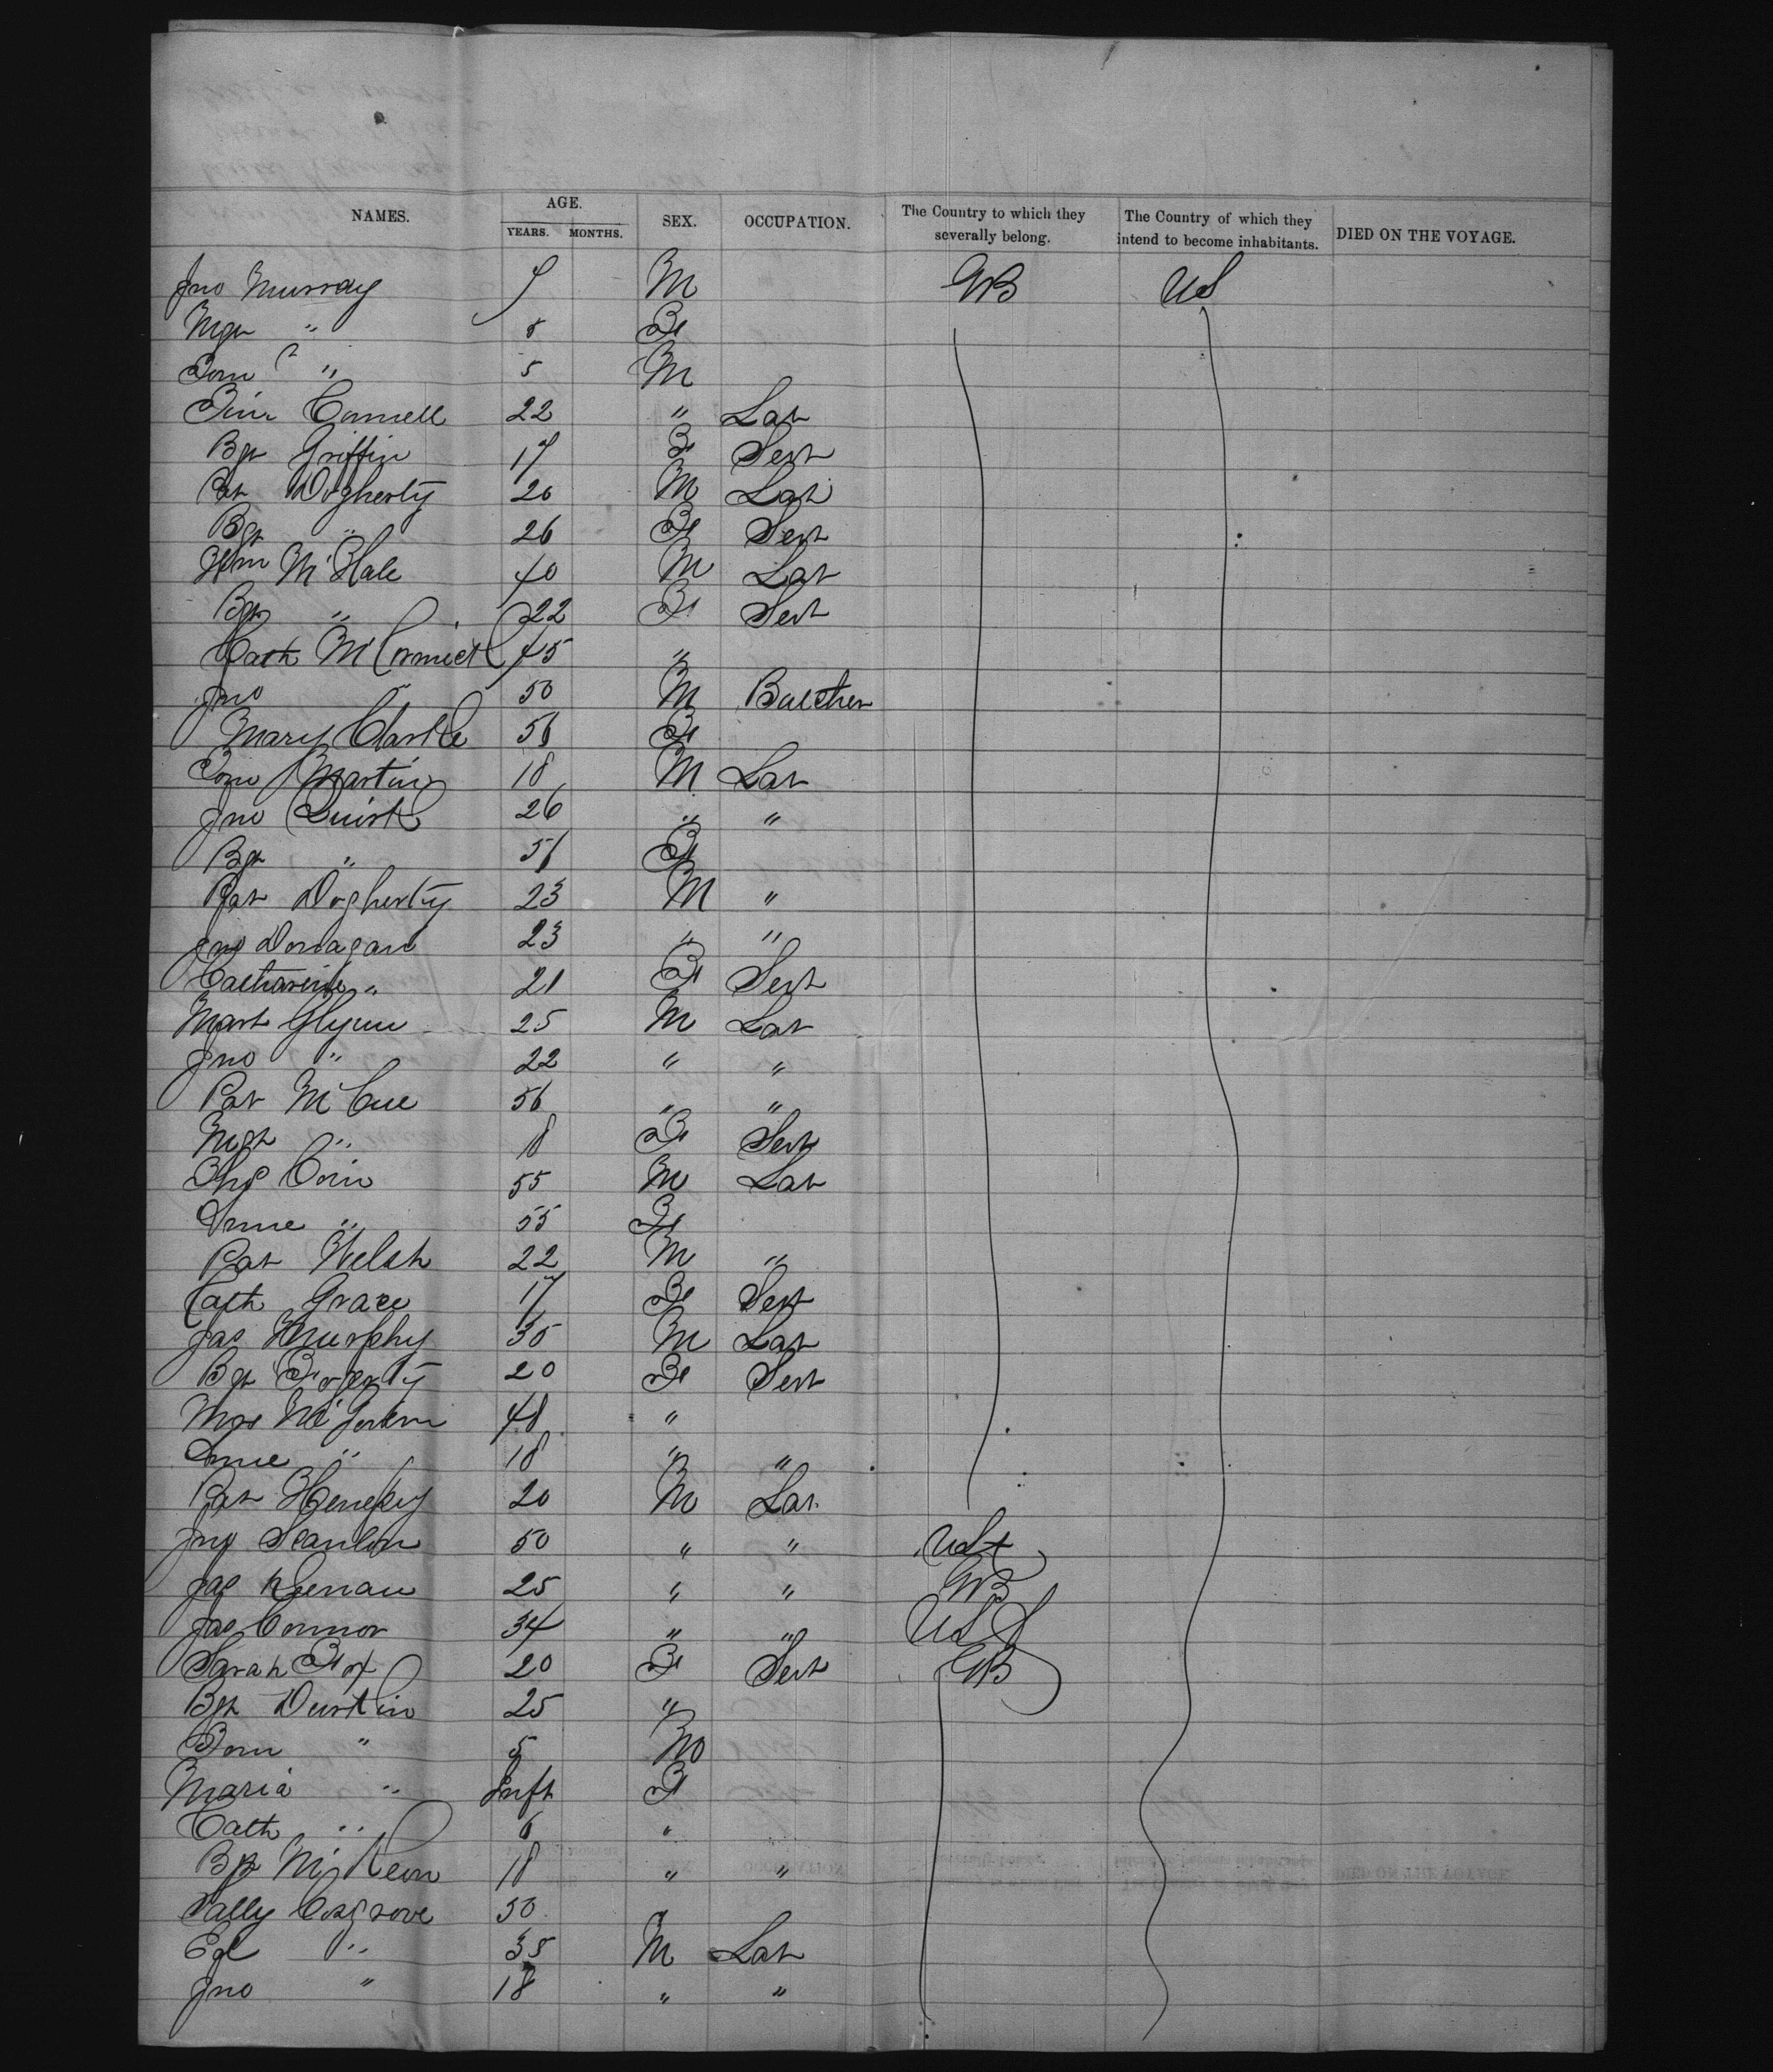 NAMES. AGE. YEARS. MONTHS. SEX. OCCUPATION. The Country to which they severally belong. The Country of which they intend to become inhabitants. DIED ON THE VOYAGE.
Jno Murray 9 M GB US
Mgt " 8 F
Tom " 5 M
Connell 22 " Lab
Bgt Griffin 17 F Sert
Pat Dogherty 20 M Lab
Bgt " 26 F Sert
Wm McHale 40 M Lab
Bgt " 22 F Sert
Cath McCormick 45 "
Jno " 50 M Butcher
Mary Clarke 56 F
Tom Martin 18 M Lab
Jno Quirk 26 " "
Bgt " 56 F
Pat Dogherty 23 M "
Jno Donagan 23 " "
Catharine " 21 F Sert
Mart Glynn 25 M Lab
Jno " 22 " "
Pat McCue 56 " "
Mgt " 18 F Sert
Ths Coin 55 M Lab
Anne " 55 F
Pat Welsh 22 M "
Cath Grace 17 F Sert
Jas Murphy 35 M Lab
Bgt Fogerty 20 F Sert
48 "
Anne " 18 " "
Pat 20 M Lab
Jno Scanlon 50 " " US
Jas Keenan 25 " " GB
Jas Connor 34 " " US
Sarah Fox 20 F Sert GB
Bgt Durkin 25 "
Tom " 5 M
Maria " Inft F
Cath " 6 "
Bgt McKeon 18 " "
Sally Cosgrove 50 "
Ed " 35 M Lab
Jno " 18 " "